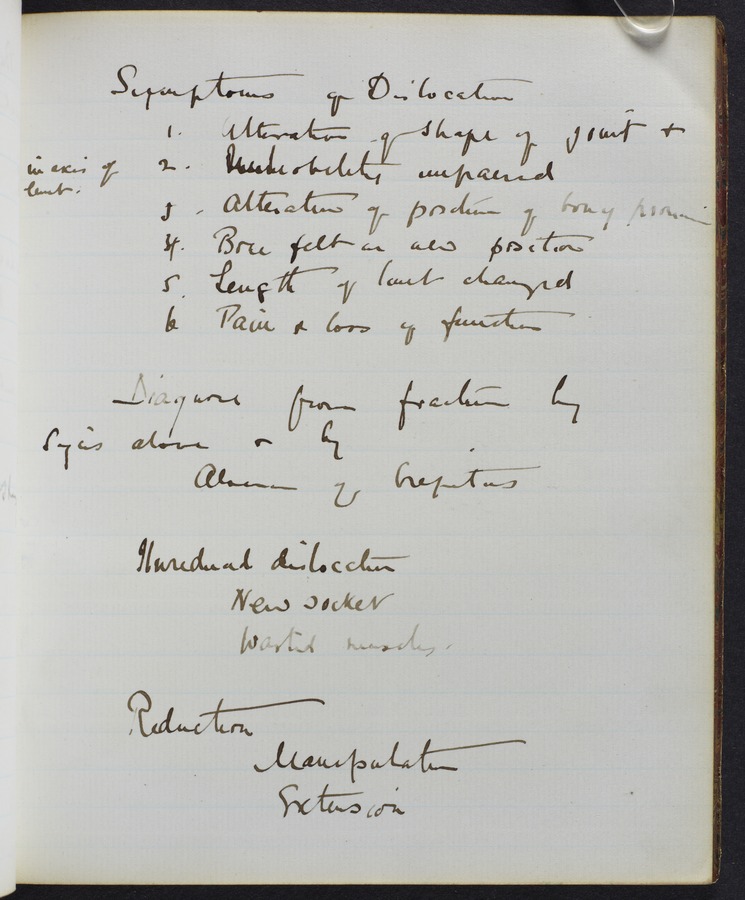 Symptoms of Dislocation
1. Alteration of shape of joint +
in axis of
limb.
2. mobility impaired
3. Alteration of position of bony promin
4. Bone felt in new position
5. Length of limb changed
6 Pain & loss of function
Diagnose from fracture by
Signs above & by
Absence of Crepitus
Unreduced dislocation
New socket
Wasted muscles.
Reduction
Manipulation
Extension